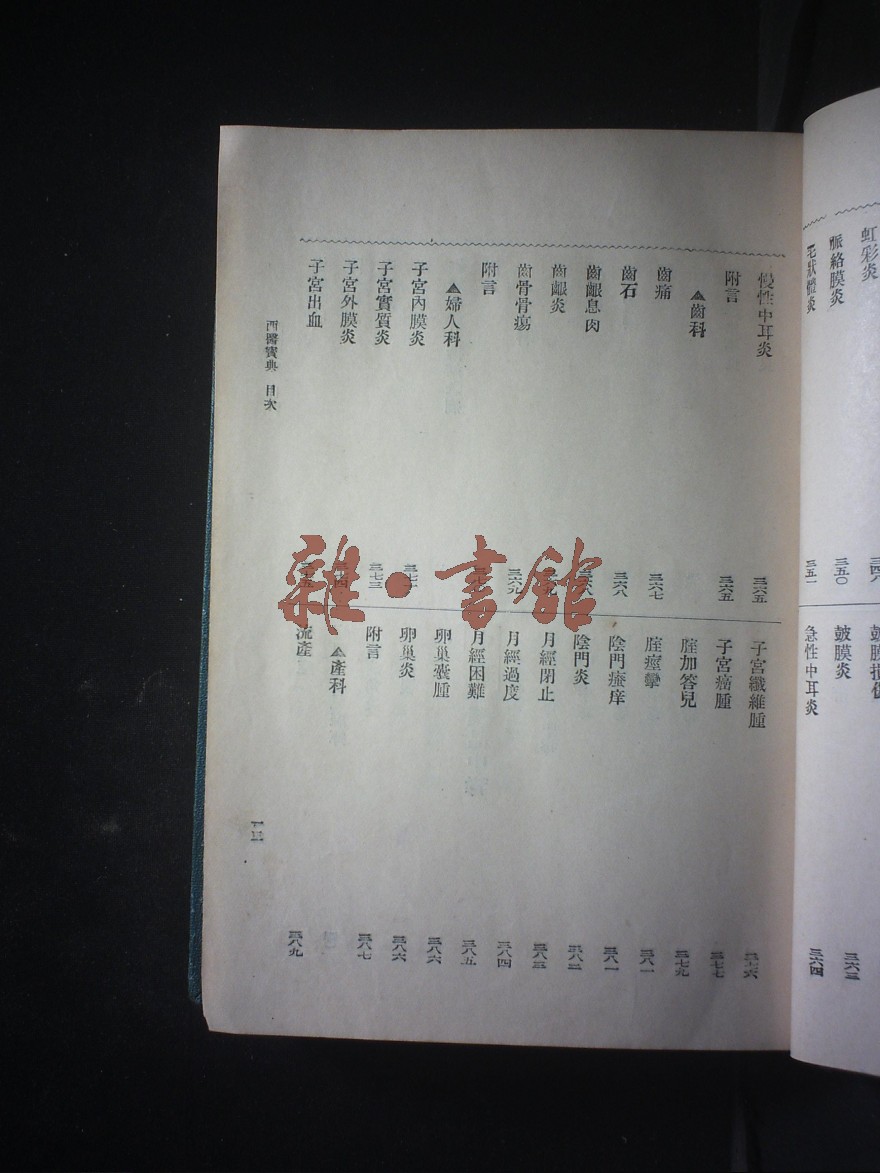 虹彩炎
脈絡膜炎 三五〇
毛狀體炎 三五一
鼓膜炎 三六三
急性中耳炎 三六四
慢性中耳炎 三六五
附言 三六五
▲齒科
齒痛 三六七
齒石 三六八
齒齦息肉
齒齦炎
齒骨骨瘍 三六九
附言
▲婦人科
子宮內膜炎
子宮實質炎 三七三
子宮外膜炎
子宮出血
子宮纖維腫 三七六
子宮癌腫 三七七
膣加答兒 三七九
膣痙攣 三八一
陰門瘙痒 三八一
陰門炎 三八二
月經閉止 三八三
月經過度 三八四
月經困難 三八五
卵巢囊腫 三八六
卵巢炎 三八六
附言 三八七
▲產科
流產 三八九
西醫寶典 目次
一三
雜·書館